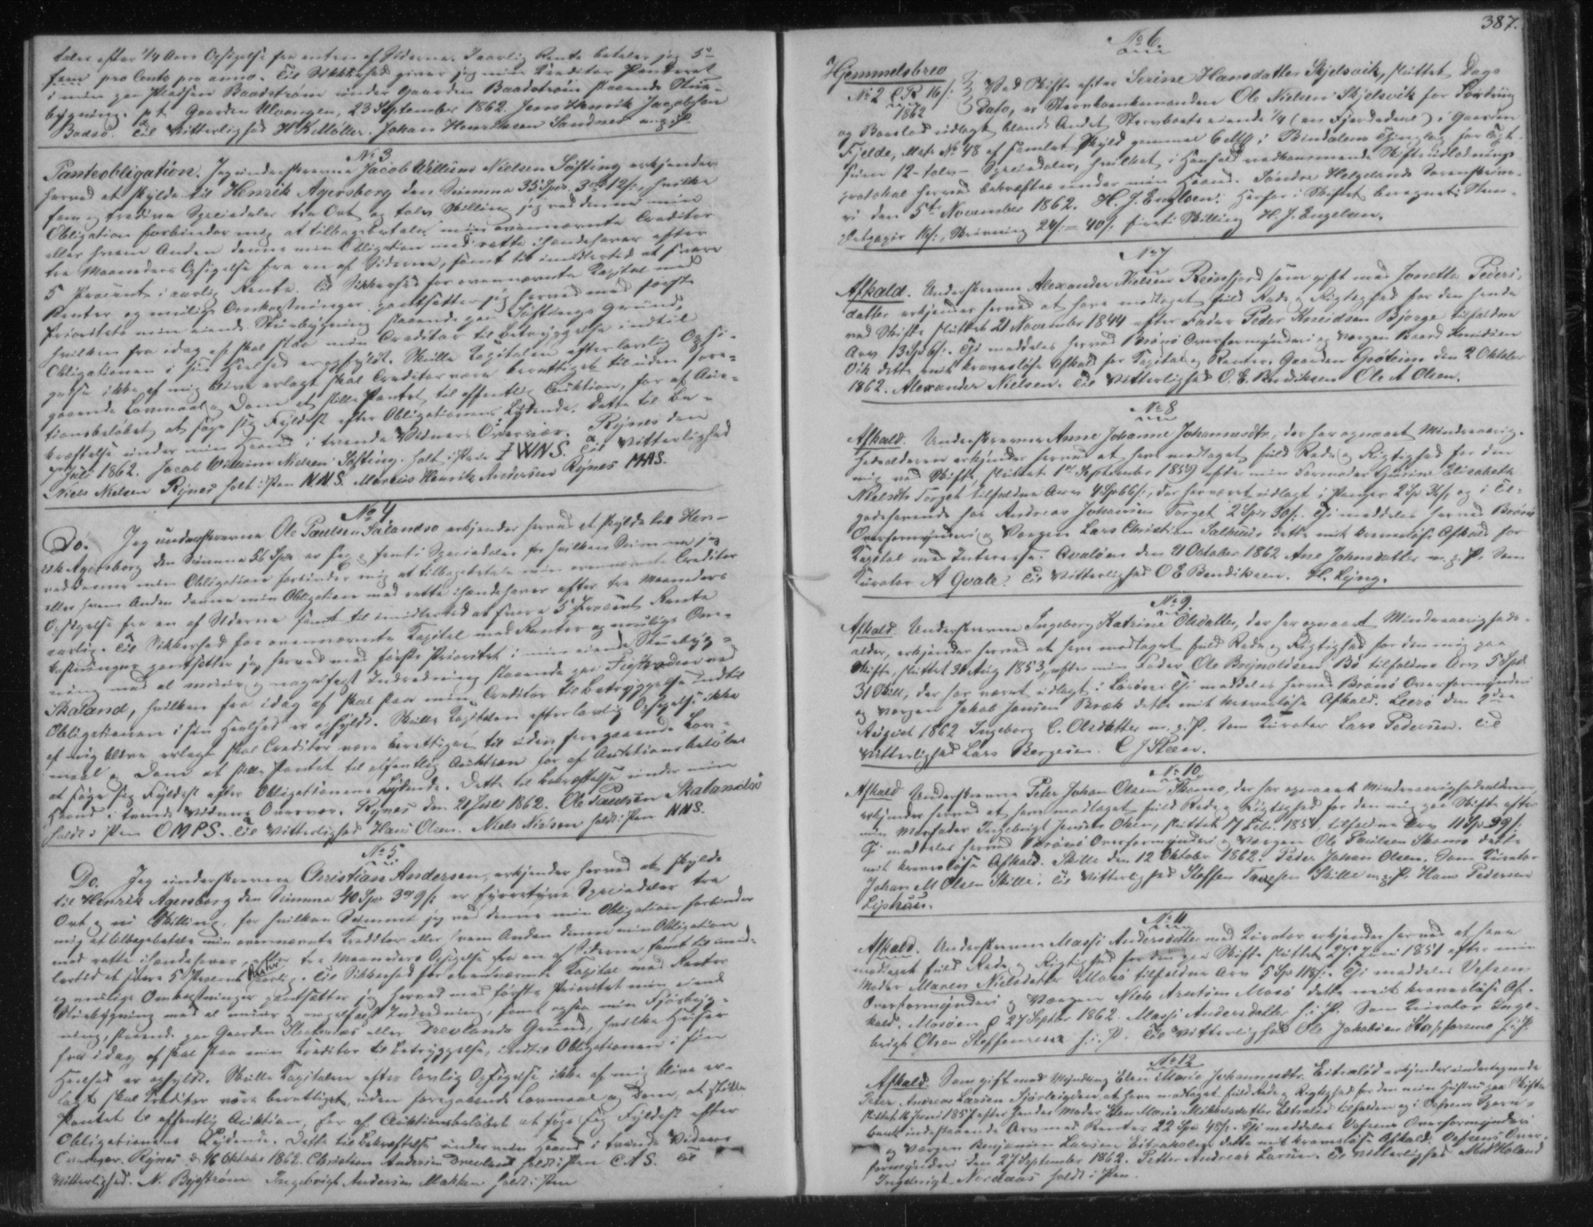 taler efter 1/4 Aars Opsigelse fra enten af Siderne. Iaarlig Rente betaler jeg 5
fem pro Cento pro anno. Til Sikkerhed giver jeg min Creditor Panteret
i min paa Pladsen Baadstrøm under Gaarden Baadstrøm staaende Stue-
bygning. p.t. Gaarden Ulvangen, 23 September 1862. Jens Henrik Jacobsen
Til Vitterlighed H K Møller. Johan Henriksen
No 3
Panteobligation. Jeg underskrevne Jacob Willum Nielsen Søfting erkjender
herved at skylde til Henrik Agersborg den Summa 35 Spd 3 12 s, hvilke
fem og tredive Speciedaler tre Ort og tolv Skilling jeg ved denne min
Obligation forbinder mig at tilbagebetale min ovennævnte Creditor
eller hvem Anden denne min Obligation med rette ihændehaver efter
tre Maaneders Opsigelse fra en af Siderne, samt til imidlertid at svare
5 Procent i aarlig Rente. Til Sikkerhed for ovennævnte Capital med
Renter og mulige Omkostninger pantsætter jeg herved med første
Prioritet min eiende Stuebygning staaende paa Søftings Grund,
hvilken fra idag af skal staa min Creditor til Betryggelse indtil
Obligationen i sin Heelhed er opfyldt. Skulle Capitalen efter lovlig Opsi-
gelse ikke af mig blive erlagt skal Creditor være berettiget til uden fore-
gaaende Lovmaal og Dom at stille Pantet til offentlig Auktion, for af Auk-
tionsbeløbet at søge sig Fyldest efter Obligationens Lydende. Dette til Be-
kræftelse under min Haand i tvende Vidners Overvær. Rynes den
7 Juli 1862. Jacob Willum Nielsen Søfting. holdt i Pen J W N S. Til Vitterlighed
Niels Nielsen Rynes holdt i Pen N N S. Marcus Henrik Andersen Rynes M A S.
No 4
Do. Jeg underskrevne Ole Paulsen Skalandsø erkjender herved at skylde til Hen-
rik Agersborg den Summa 56 Spd er sex og femti Speciedaler for hvilken Summa jeg
ved denne min Obligation forbinder mig at tilbagebetale min ovennævnte Creditor
eller hvem Anden denne min Obligation med rette ihændehaver efter tre Maaneders
Opsigelse fra en af Siderne samt til imidlertid at svare 5 Procent Rente
aarlig. Til Sikkerhed for ovennævnte Capital med Renter og mulige Om-
kostninger pantsætter jeg herved med første Prioritet min eiende Stuebyg-
ning med al muur og nagelfast Indredning staaende paa ved
Skaland, hvilken fra idag af skal staa min Creditor til betryggelse indtil
Obligationen i sin Heelhed er opfyldt. Skulle Capitalen efter lovlig Opsigelse ikke
af mig blive erlagt skal Creditor være berettiget til uden foregaaende Lov-
maal og Dom at stille Pantet til offentlig Auktion for af Auktionsbeløbet
at søge sig Fyldest efter Obligationens Lydende. Dette til bekræftelse under min
Haand i tvende Vidners Overvær. Rynes den 21 Juli 1862. Ole Paulsen Skalandsø
holdt i Pen O M P S. Til Vitterlighed Hans Olsen. Niels Nielsen holdt i Pen N N S.
No 5
Do. Jeg underskrevne Christian Andersen, erkjender herved at skylde
til Henrik Agersborg den Summa 40 Spd 3 9 s er fyrretyve Speciedaler tre
Ort og ni Skilling, for hvilken Summa jeg ved denne min Obligation forbinder
mig at tilbagebetale min ovennævnte Creditor eller hvem Anden denne min Obligation
med rette ihændehaver, efter tre Maaneders Opsigelse fra en af Siderne samt til imid-
lertid at svare 5 Procent Rente aarlig. Til Sikkerhed for ovennævnte Capital med Renter
og mulige Omkostninger pantsætter jeg herved med første Prioritet min eiende
Stuebygning med al muur og nagelfast Indredning, samt ogsaa min Fjøsbyg-
ning, staaende paa Gaarden eller Drevlands Grund, hvilke Huuse
fra idag af skal staa min Creditor til betryggelse, indtil Obligationen i sin
Heelhed er opfyldt. Skulle Capitalen efter lovlig Opsigelse ikke af mig blive er-
lagt skal Creditor være berettiget uden foregaaende Lovmaal og Dom, at stille
Pantet til offentlig Auktion, for af Auktionsbeløbet at søge sig Fyldest efter
Obligationens Lydende. Dette til bekræftelse under min Haand i tvende Vidners
Overvær. Rynes d. 16 Oktober 1862. Christian Andersen Drevland holdt i Pen C A S. Til
Vitterlighed. N. Ingebrigt Andersen holdt i Pen
387.
No 6.
Hjemmelsbrev
No 2 16 s
1862
Ved Skifte efter Serine Hansdatter Skjelsvik, sluttet Dags
Dato, er Ole Nielsen Skjelsvik for Fordring
og Boeslod udlagt blandt Andet, eiende 1/4 (en Fjerdedeel) i Gaarden
Fjelde, Mat. No 48 af samlet Skyld i Bindalens Thinglag for Taxt
Summa 12 - tolv - Speciedaler, hvilket, i Henhold vedkommende Skifteudlodnings
protokol herved bekræftes under min Haand. Søndre Helgelands Sorenskriver-
i den 5 November 1862. H. J. Engelsen. Herfor i Skiftet beregnet: Stem-
pletpapir 16 s, Skrivning 24 s = 40 s firti Skilling H. J. Engelsen.
No 7
Afkald. Underskrevne Alexander Nielsen Reinfjord som gift med Jonetta Peders-
datter erkjender herved at have modtaget fuld Rede og Rigtighed for den hende
ved Skifte sluttet 21 November 1844 efter Fader Peder Bjørge tilfaldne
Arv 13 Spd 6 s. Thi meddeles herved Brønø Overformynderi og Værgen Baard Knudsen
Vik dette mit kravesløse Afkald for Capital og Renter. Gaarden den 2 Oktober
1862. Alexander Nielsen. Til Vitterlighed O. E. Bendiksen Ole A Olsen.
No 8
Afkald. Underskrevne Anne Johanne Johannesdtr, der har opnaaet Mindreaarig-
hedsalderen erkjender herved at have modtaget fuld Rede og Rigtighed for den
mig ved Skifte, sluttet 1 September 1859 efter min Formoder Gunine Elisabeth
Nielsdtr Torget tilfaldne Arv 4 Spd 66 s, der har været udlagt i Penger 2 Spd 36 s og i Til-
godehavende hos Andreas Johansen Torget 2 Spd 30 s. Thi meddeles herved Brønø
Overformynderi og Værgen Lars Christian dette mit kravesløse Afkald for
Capital med Interesse. Qvaløen den 21 October 1862 Ane Johansdatter m.p.P. Som
Curator A Qvale. Til Vitterlighed O E Bendiksen. H. Lyng.
No 9.
Afkald. Underskrevne Ingeborg Katrine Olsdatter, der har opnaaet Mindreaarigheds-
alder, erkjender herved at have modtaget fuld Rede og Rigtighed for den mig paa
Skifte, sluttet 31 Aug 1853, efter min Fader Ole Bø tilfaldne Arv 5 Spd
31 Skill, der har været udlagt i Løsøre. Thi meddeles herved Brønø Overformynderi
og Værgen Jakob Jansen Bræk dette mit kravesløse Afkald. Leerø den 9
August 1862 Ingeborg C. Olsdatter m.p.P. Som Curator Lars Pedersen. Til
Vitterlighed Lars Borgersen. C J Steen.
No 10
Afkald Underskrevne Peter Johan Olsen Skomo, der har opnaaet Mindreaarighedsalderen,
erkjender herved at have modtaget fuld Rede og Rigtighed for den mig paa Skifte efter
min Morfader Ingebrigt Olsen, sluttet 17 Febr. 1851, tilfaldne Arv 11 Spd 99 s.
Thi meddeles herved Brønø Overformynderi og Værgen Ole Paulsen Skomo dette
mit kravesløse Afkald. Skille den 12 Oktober 1862. Peder Johan Olsen. Som Curator
Johan M Olsen Skille. Til Vitterlighed Steffen Skille m.p.P. Hans Pedersen

No 11
Afkald. Underskrevne Massi Andersdatter med Curator erkjender herved at have
modtaget fuld Rede og Rigtighed for den paa Skifte sluttet 27 Juni 1851 efter min
Moder Maren Nielsdatter Mosø tilfaldne Arv 5 Spd 118 s. Thi meddeles Vefsen
Overformynderi og Værgen Niels Arntsen Mosø dette mit kravesløse Af-
kald. Mosøen d 27 Septbr 1862. Massi Andersdatter h.i.P. Som Curator Inge-
brigt Olsen h.i.P. Til Vitterlighed Ole Jakobsen h.i.P.
No 12
Afkald. Som gift med Myndling Elen Maria Johannesdtr. Eiteraaed erkjender undertegnede
Peter Andreas Larsen at have modtaget fuld Rede og Rigtighed for den min Hustru paa Skifte
sluttet 16 Juni 1857 efter hendes Moder Elen Marie tilfaldne og i Vefsens Spare-
bank indestaaende Arv med Renter 22 Spd 40 s. Thi meddeles Vefsens Overformynderi
og Værgen Benjamin Larsen dette mit kravesløse Afkald. Vefsens Over-
formynderi den 27 September 1862. Petter Andreas Larsen. Til Vitterlighed
Ingebrigt holdt i Pen.